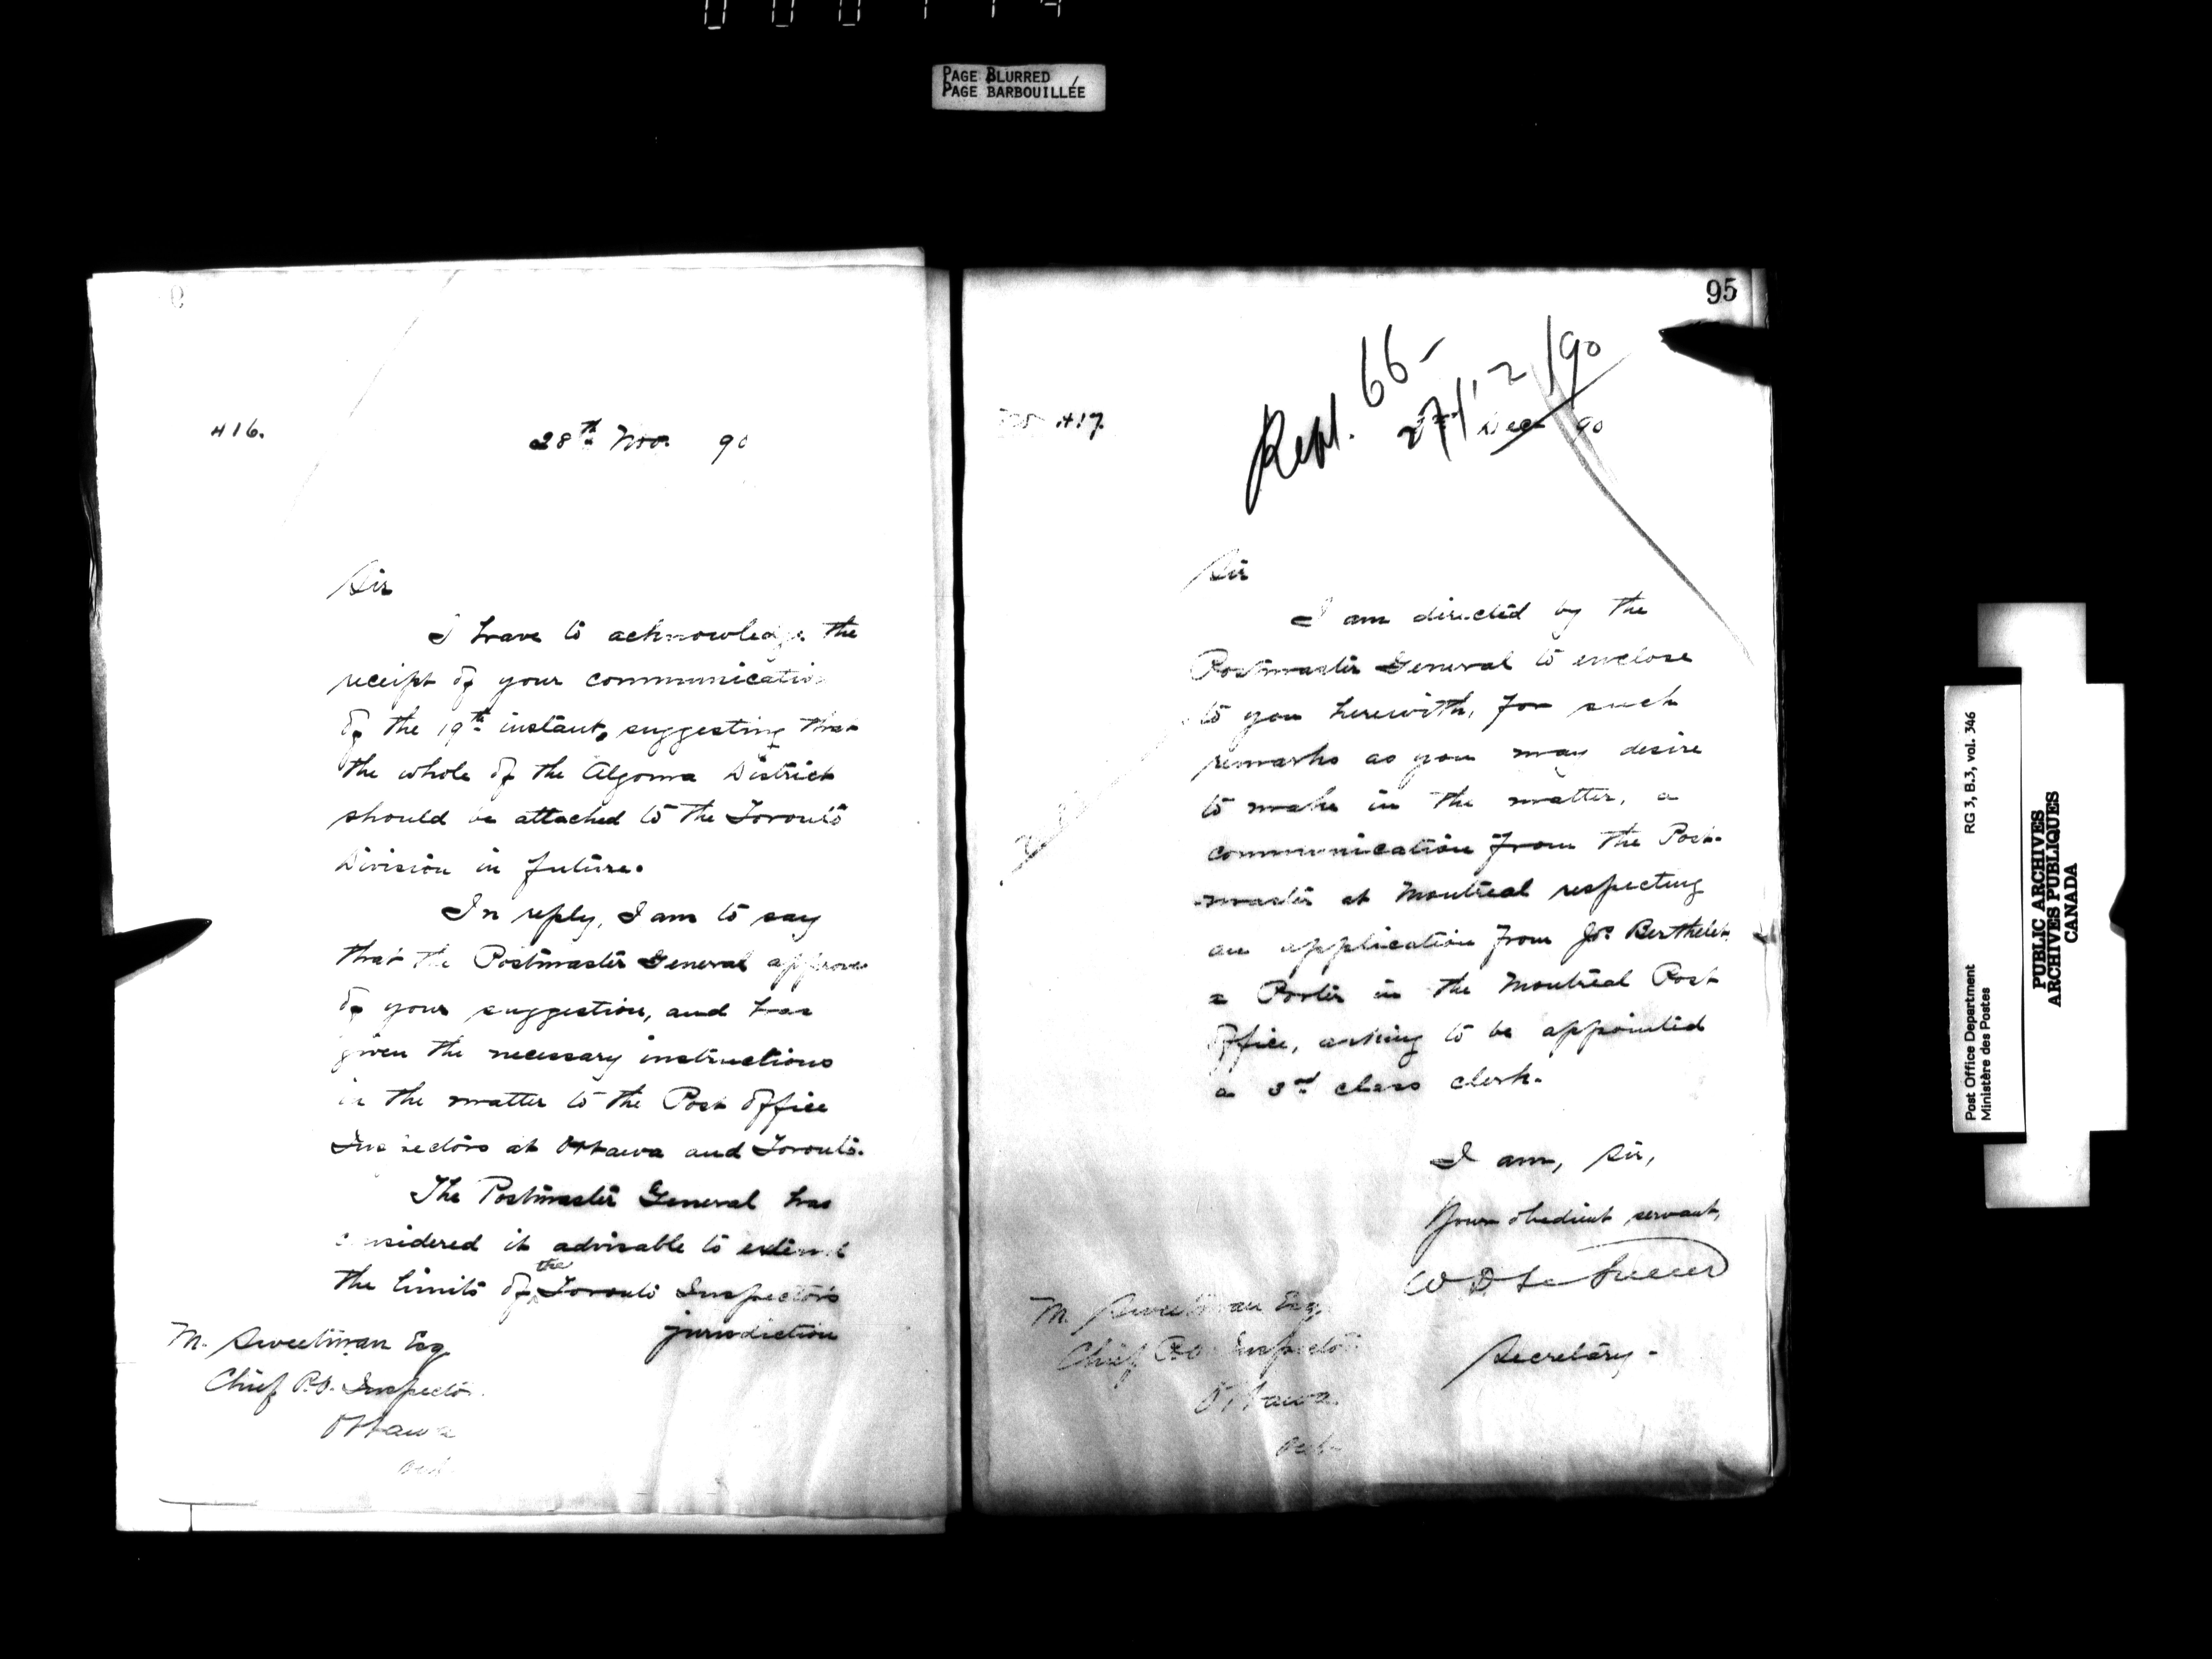 PAGE BLURRED
PAGE BARBOUILLÉE
416.
28th Nov. 90
Sir
I have to acknowledge the
receipt of your communication
of the 19th instant, suggesting that
the whole of the Algoma District
should be attached to the Toronto
Division in future.
In reply, I am to say
that the Postmaster General approves
of your suggestion, and has
given the necessary instructions
in the matter to the Post Office
Inspectors at Ottawa and Toronto.
The Postmaster General has
considered it advisable to extend
the limits of the Toronto Inspector's
jurisdiction
M. Sweetman Esq
Chief P.O. Inspector
Ottawa
95
417.
Repl. 66-
27/12/90
Dec 90
Sir
I am directed by the
Postmaster General to enclose
to you herewith, for such
remarks as you may desire
to make in the matter, a
communication from the Post-
master at Montreal respecting
an application from Jos. Berthelet,
a Porter in the Montreal Post
Office, asking to be appointed
a 3rd class clerk.
I am, Sir,
Your obedient servant,
W D LeSueur
Secretary-
M. Sweetman Esq.
Chief P.O. Inspector
Ottawa
Post Office Department RG 3, B.3, vol. 346
Ministère des Postes
PUBLIC ARCHIVES
ARCHIVES PUBLIQUES
CANADA